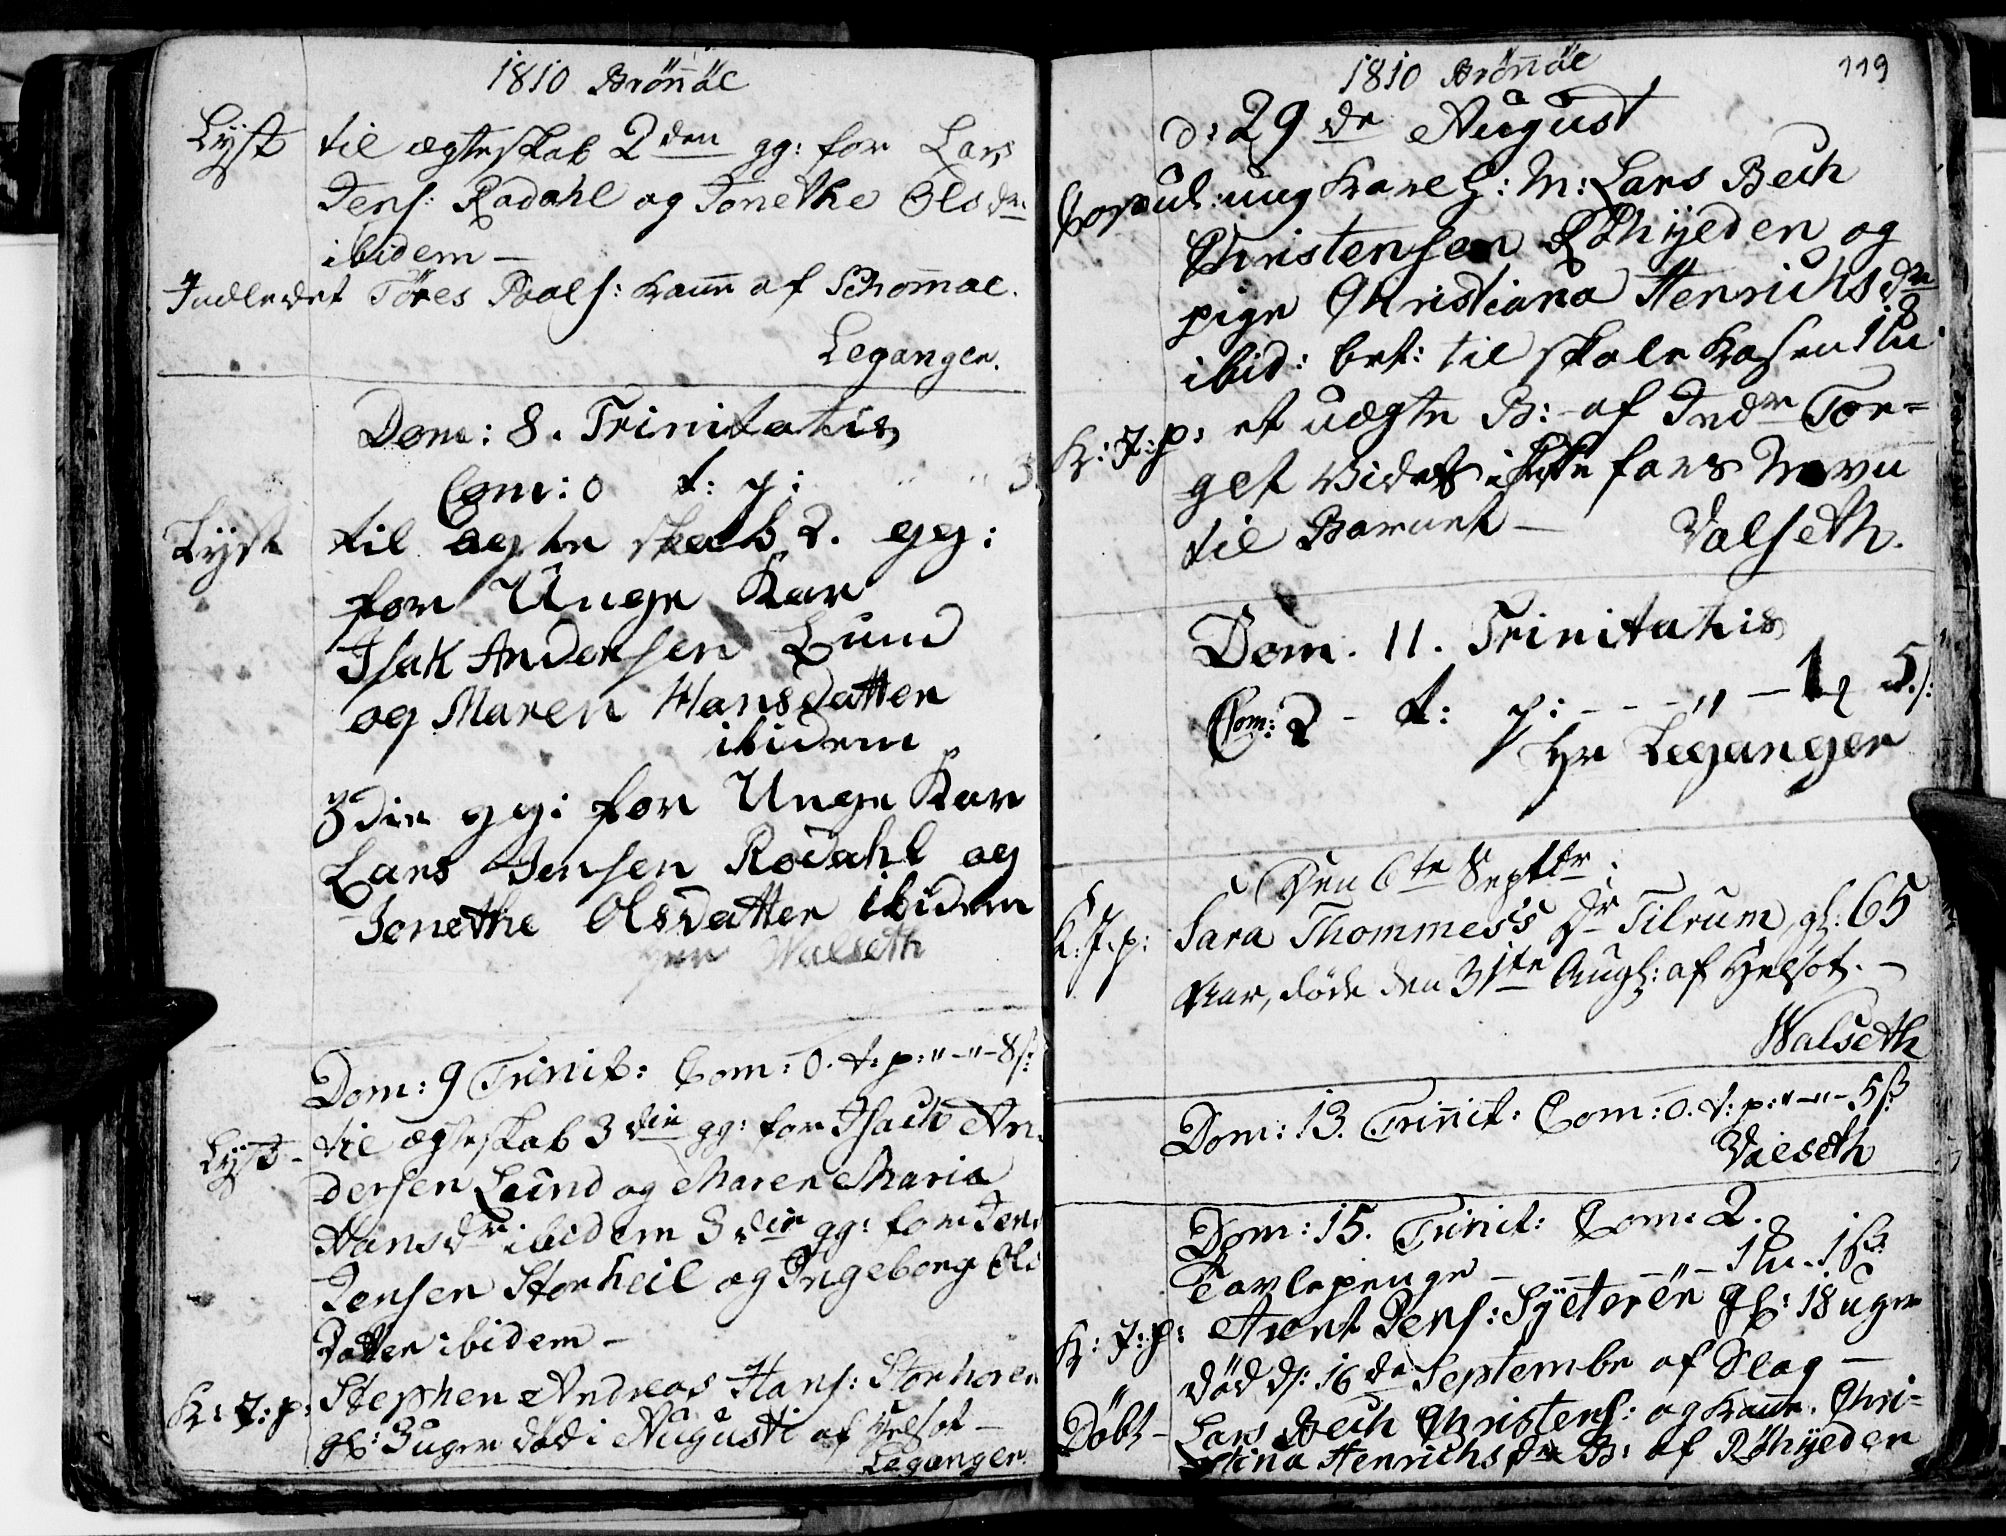 1810 Brönöe
Lyst til ægteskab 2den gg: for Lars
Jens: Rødahl og Jonethe Olsdr
ibidem —
Indledet Töres Poels: kone af Schomoe.
Leganger.
Dom: 8. Trinitatis
Com: 0 t: p: " " 3
Lyst til ægte skab 2. gg:
for Unge Kar
Isak Andersen Lund
og Maren Hansdatter
ibidem
3die gg: for Unge Kar
Lars Jensen Rødahl og
Jonethe Olsdatter ibidem
Hr Walseth
Dom: 9 Trinit: Com: 0. t: p: " — " — 8 s:
Lyst — til ægteskab 3die gg: for Isach An-
dersen Lund og Maren Maria
Hansdr ibidem 3die gg: for Jens
Jensen Storheil og Ingeborg Ols
Datter ibidem —
K: J: p: Stephen Andreas Hans: Storhoren
gl: 3 uger død i Augusti af Helsot —
Leganger.
1810 Brönöe 119
d: 29de August
Copul: ung Karl S: M: Lars Bech
Christensen Röhyeden og
pige Christiana Henrichsdr
ibid: bet: til skole Kassen 1
K: J: p: et uægte B: af Indr Tor-
get vidst ikke fars Navn
til Barnet — Valseth.
Dom. 11. Trinitatis
Com: 2 — t: p: - - - " — 1 5 s:
Hr Leganger
Den 6te Septbr:
K: J: p: Sara Thommess Dr Tilrum, gl: 65
Aar, døde den 31te Augs: af Helsot. —
Walseth
Dom: 13. Trinit: Com: 0. t: p: " — " — 5 ß
Valseth
Dom: 15. Trinit: Com: 2.
Tavlepenge — — — " — 1 1 ß
K: J: p: Arent Jens: Sÿeterön gl: 18 uger
död d: 16de Septembr af Slag —
Döbt — Lars Bech Christens: og kone. Chri-
stina Henrichsdr B: af Röhyeden